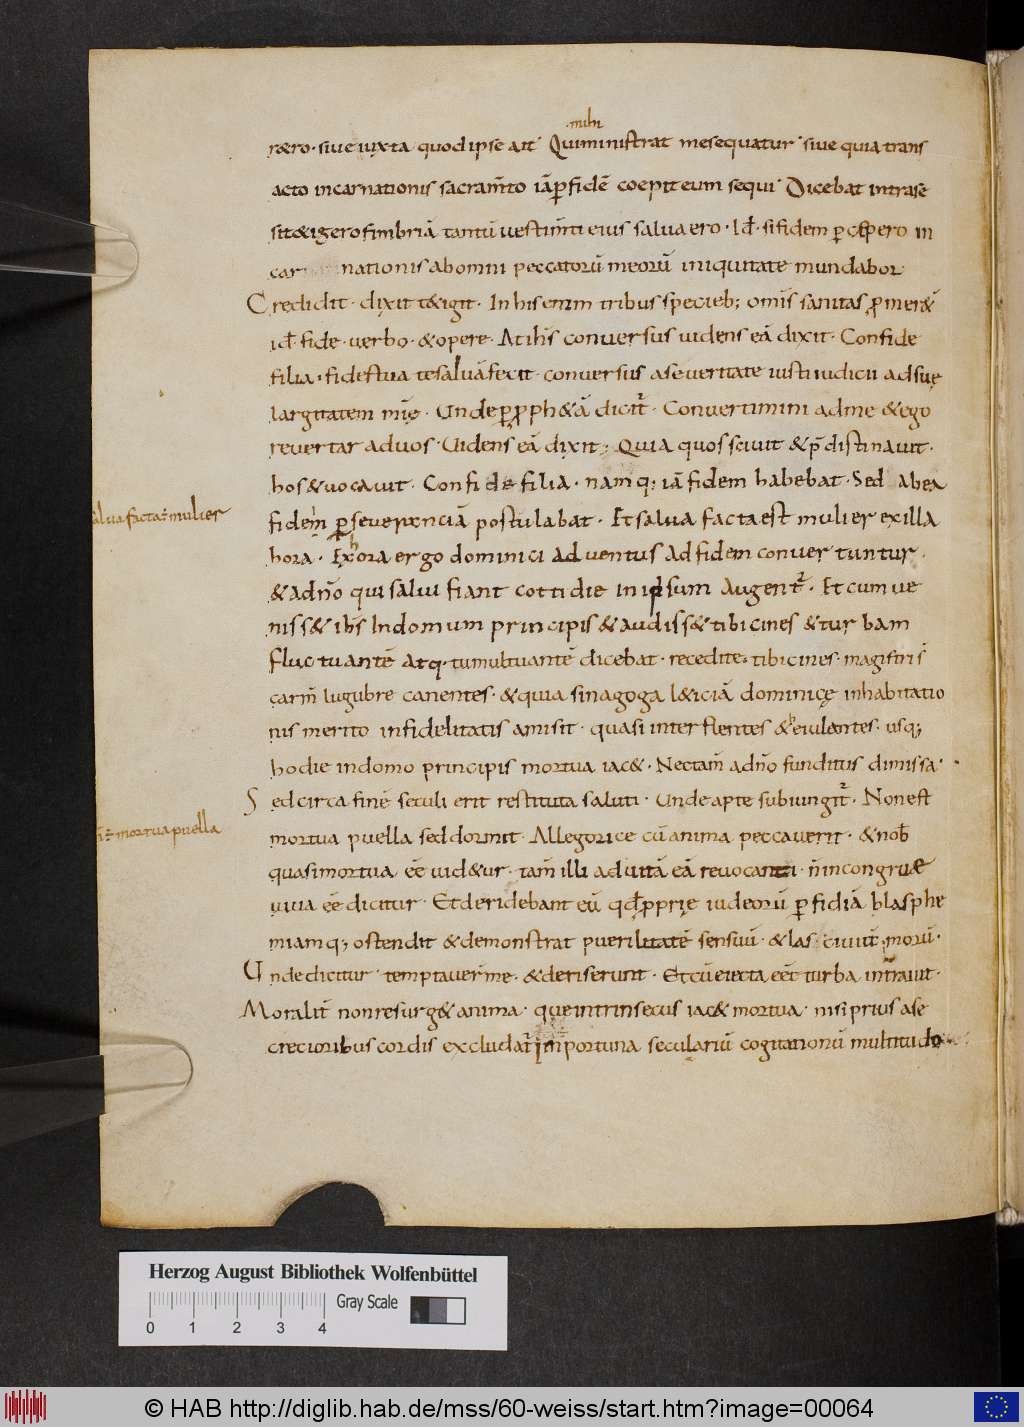 mihi
rȩro · siue iuxta quod ipse ait · Qui ministrat me sequatur · siue quia trans
acto incarnationis sacram̄to iā ꝑ fidē coepit eum sequi · Dicebat intra se
si t&igero fimbriā tantū uestim̄ti eius salua ero · Id̄ · si fidem
nationis a bomni peccatorū meorū iniquitate mundabor
Credidit · dixit t&igit · In his enim tribus specieb; om̄s sanitas
id̄ fide · uerbo · & opere · At ih̄s conuersus uidens eā dixit · Confide
filia · fides tua te saluā fecit · conuersus a seueritate iusti iudicii ad suę
largitatem
Conuertimini ad me & ego
reuertar ad uos · Uidens eā dixit; Quia quos sciuit & p̄distinauit ·
hos & uocauit · Confide filia · namq; iā fidem habebat · Sed ab ea
salua facta ÷ mulier
fidem ꝑseuerantiā postulabat · Et salua facta est mulier ex illa
hora · Ex hora ergo dominici aduentus ad fidem conuertuntur ·
& ad n̄o qui salui fiant cottidie in ipsum augent᷑ · Et cum ue
niss& ih̄s In domum principis & audiss& tibicines & turbam
fluctuantē atq · tumultuantē dicebat · recedite · tibicines · magistri s̄
carm̄ lugubre canentes · & quia sinagoga l&iciā dominicę inhabitatio
nis merito infidelitatis amisit · quasi inter flentes & heiulantes · usq;
hodie in domo principis mortua iac& · Nec tam̄ ad n̄o funditus dimissa ·
Sed circa finē seculi erit restituta saluti · Unde apte subiungit᷑ · Non est
÷ mortua puella
mortua puella sed dormit · Allegorice cū anima peccauerit · & nob̄
quasi mortua eē uid&ur · tam̄ illi ad uitā eā reuocanti · n̄ incongruæ
uiua eē dicitur · Et deridebant eū
iudeorū ꝑfidiā blasphe
miamq; ostendit & demonstrat puerilitatē sensuū · & las ciuiū morū ·
Unde dicitur · temptauer̄ me · & deriserunt · Et cū eiecta eēt turba intrauit ·
Moralit᷑ non resurg& anima · que intrinsecus iac& mortua · nisi prius a se
cretioribus cordis excludat᷑ importuna seculariū cogitationū multitudo
Herzog August Bibliothek Wolfenbüttel
Gray Scale
0 1 2 3 4
© HAB http://diglib.hab.de/mss/60-weiss/start.htm?image=00064